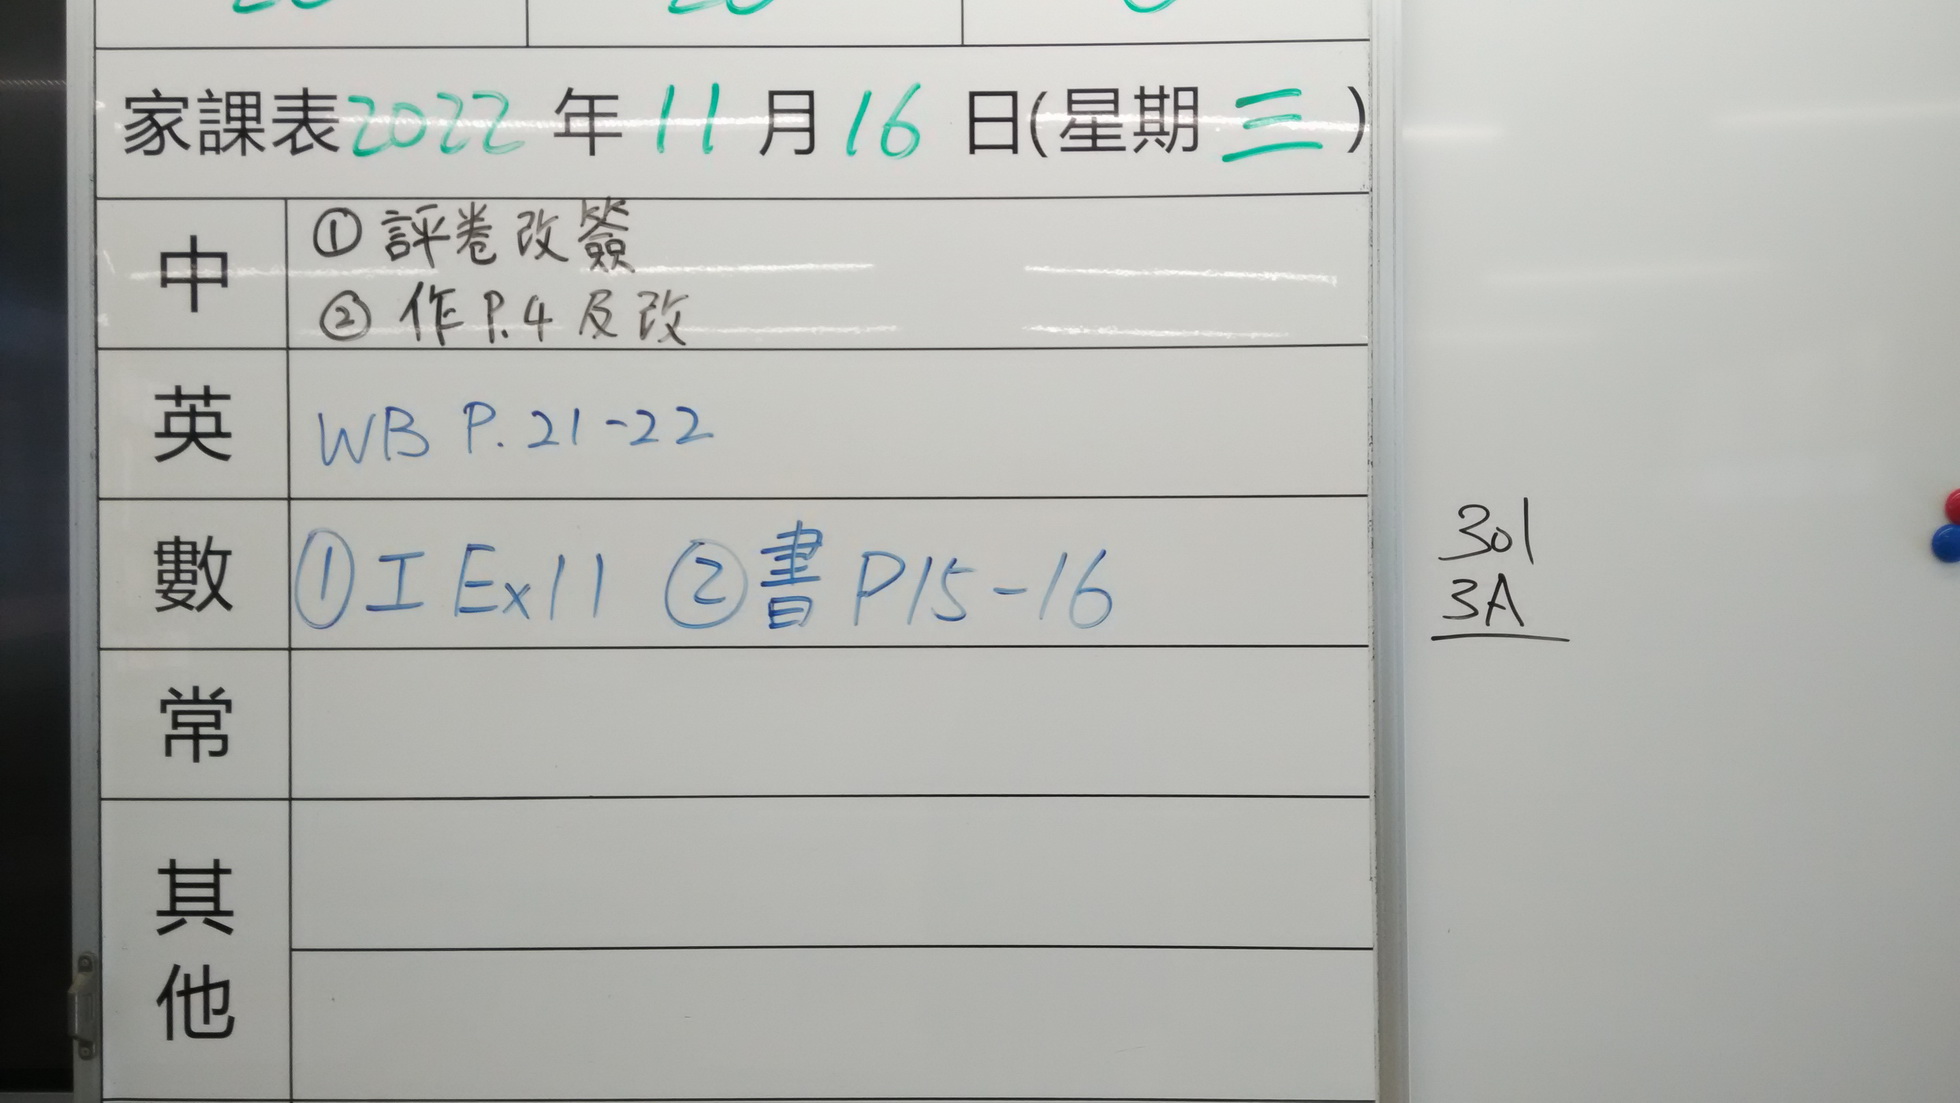 家課表2022年11月16日(星期三)
中
① 評卷改簽
② 作P.4及改
英
WB P.21-22
數
①工 Ex11 ②書P15-16
常
其他
301
3A